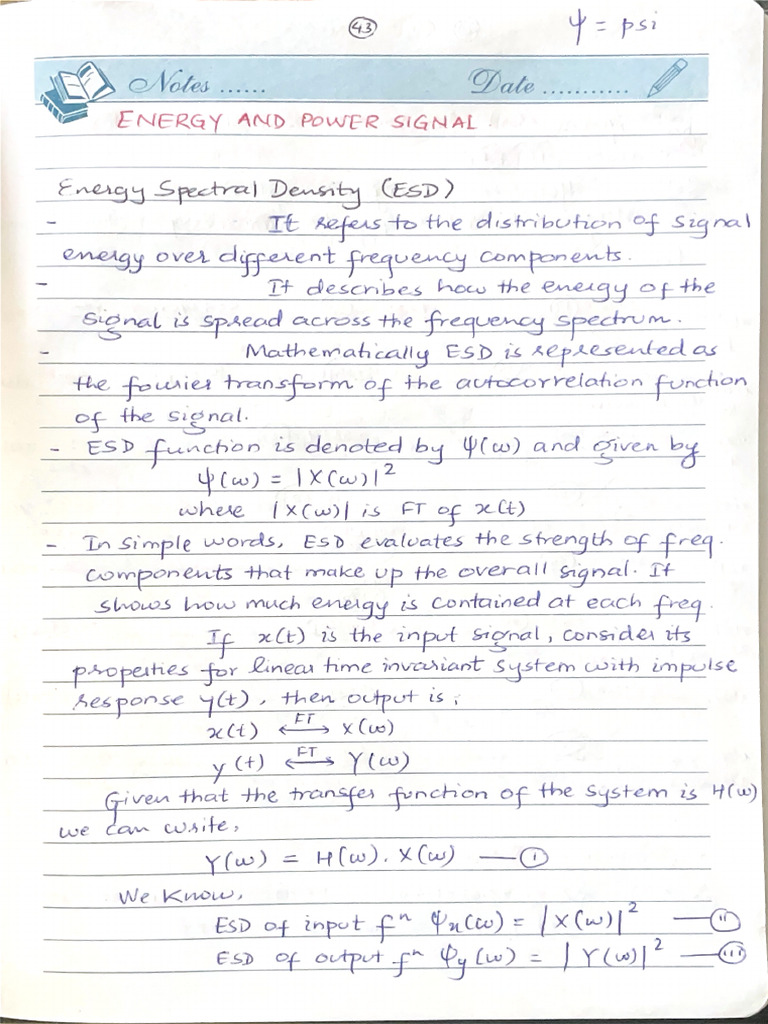 43
ψ = psi
Notes ...... Date ...........
ENERGY AND POWER SIGNAL.
Energy Spectral Density (ESD)
- It refers to the distribution of signal
energy over different frequency components.
- It describes how the energy of the
signal is spread across the frequency spectrum.
- Mathematically ESD is represented as
the fourier transform of the autocorrelation function
of the signal.
- ESD function is denoted by ψ(ω) and given by
ψ(ω) = |X(ω)|²
where |X(ω)| is FT of x(t)
- In simple words, ESD evaluates the strength of freq.
components that make up the overall signal. It
shows how much energy is contained at each freq.
If x(t) is the input signal, consider its
properties for linear time invariant system with impulse
response y(t), then output is;
x(t) ⟷FT X(ω)
y(t) ⟷FT Y(ω)
Given that the transfer function of the system is H(ω)
we can write,
Y(ω) = H(ω). X(ω) —(i)
We Know,
ESD of input fⁿ ψx(ω) = |X(ω)|² —(ii)
ESD of output fⁿ ψy(ω) = |Y(ω)|² —(iii)